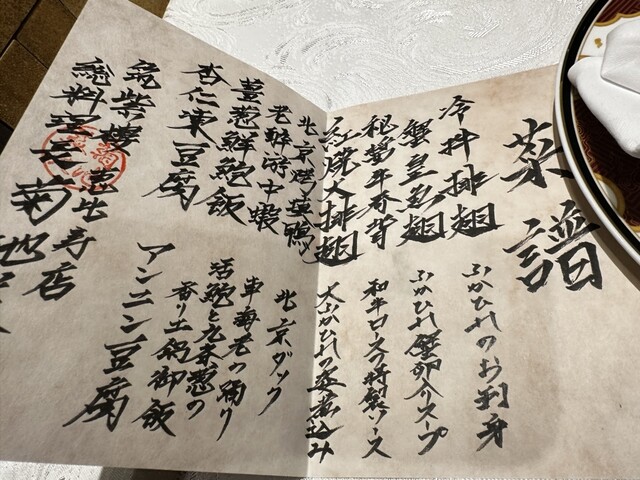 菜譜
冷拌排翅
ふかひれのお刺身
蟹皇魚翅
ふかひれ蟹卵入りスープ
秘醤牛脊背
和牛ロースの特製ソース
紅焼大排翅
大ふかひれの姿煮込み
北京
北京ダック
老酔游中蝦
車海老の踊り
薑葱鮮鮑飯
活鮑と九条葱の
香り土鍋御飯
杏仁凍豆腐
アンニン豆腐
筑紫樓 恵比寿店
総料理長 菊池